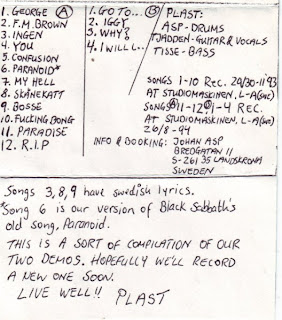 1. GEORGE Ⓐ
2. F.M. BROWN
3. INGEN
4. YOU
5. CONFUSION
6. PARANOID*
7. MY HELL
8. SKÅNEKATT
9. BOSSE
10. FUCKING BONG
11. PARADISE
12. R.I.P
1. GO TO... Ⓑ
2. IGGY
3. WHY?
4. I WILL...
PLAST:
ASP-DRUMS
TJADDEN-GUITAR & VOCALS
TISSE-BASS
SONGS 1-10 REC. 29/30-11 93
AT STUDIOMASKINEN, L-A (SWE)
SONGS Ⓐ 11-12, Ⓑ 1-4 REC.
AT STUDIOMASKINEN, L-A (SWE)
26/8-94
INFO & BOOKING: JOHAN ASP
BREDGATAN 11
S-261 35 LANDSKRONA
SWEDEN
Songs 3,8,9 have swedish lyrics.
*Song 6 is our version of Black Sabbath's
old song, Paranoid.
THIS IS A SORT OF COMPILATION OF OUR
TWO DEMOS. HOPEFULLY WE'LL RECORD
A NEW ONE SOON.
LIVE WELL!! PLAST